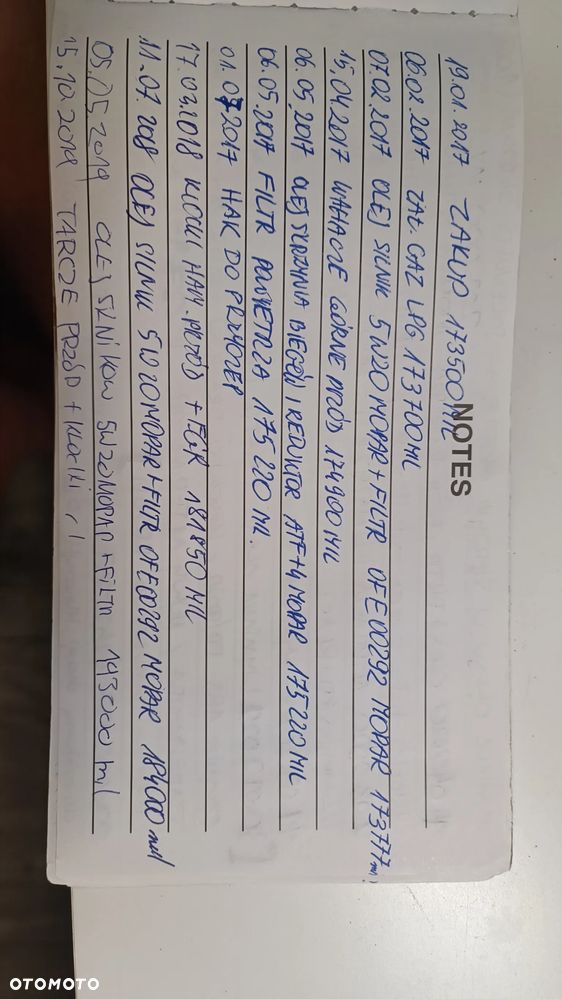 NOTES
19.01.2017 ZAKUP 173500 MIL
06.02.2017 ZAŁ. GAZ LPG 173700 MIL
07.02.2017 OLEJ SILNIK 5W20 MOPAR + FILTR OFE00292 MOPAR 173777 mil
15.04.2017 WAHACZE GÓRNE PRZÓD 174900 MIL
06.05.2017 OLEJ SKRZYNIA BIEGÓW I REDUKTOR ATF+4 MOPAR 175220 MIL
06.05.2017 FILTR POWIETRZA 175220 MIL.
01.07.2017 HAK DO PRZYCZEP
17.03.2018 KLOCKI HAM. PRZÓD + TÓŁ 181850 MIL
11.07.2018 OLEJ SILNIK 5W20 MOPAR + FILTR OFE00292 MOPAR 184000 mil
05.05.2019 OLEJ SILNIKOW 5W20 MOPAR + FILTR 193000 mil
15.10.2019 TARCZE PRZÓD + klocki
OTOMOTO